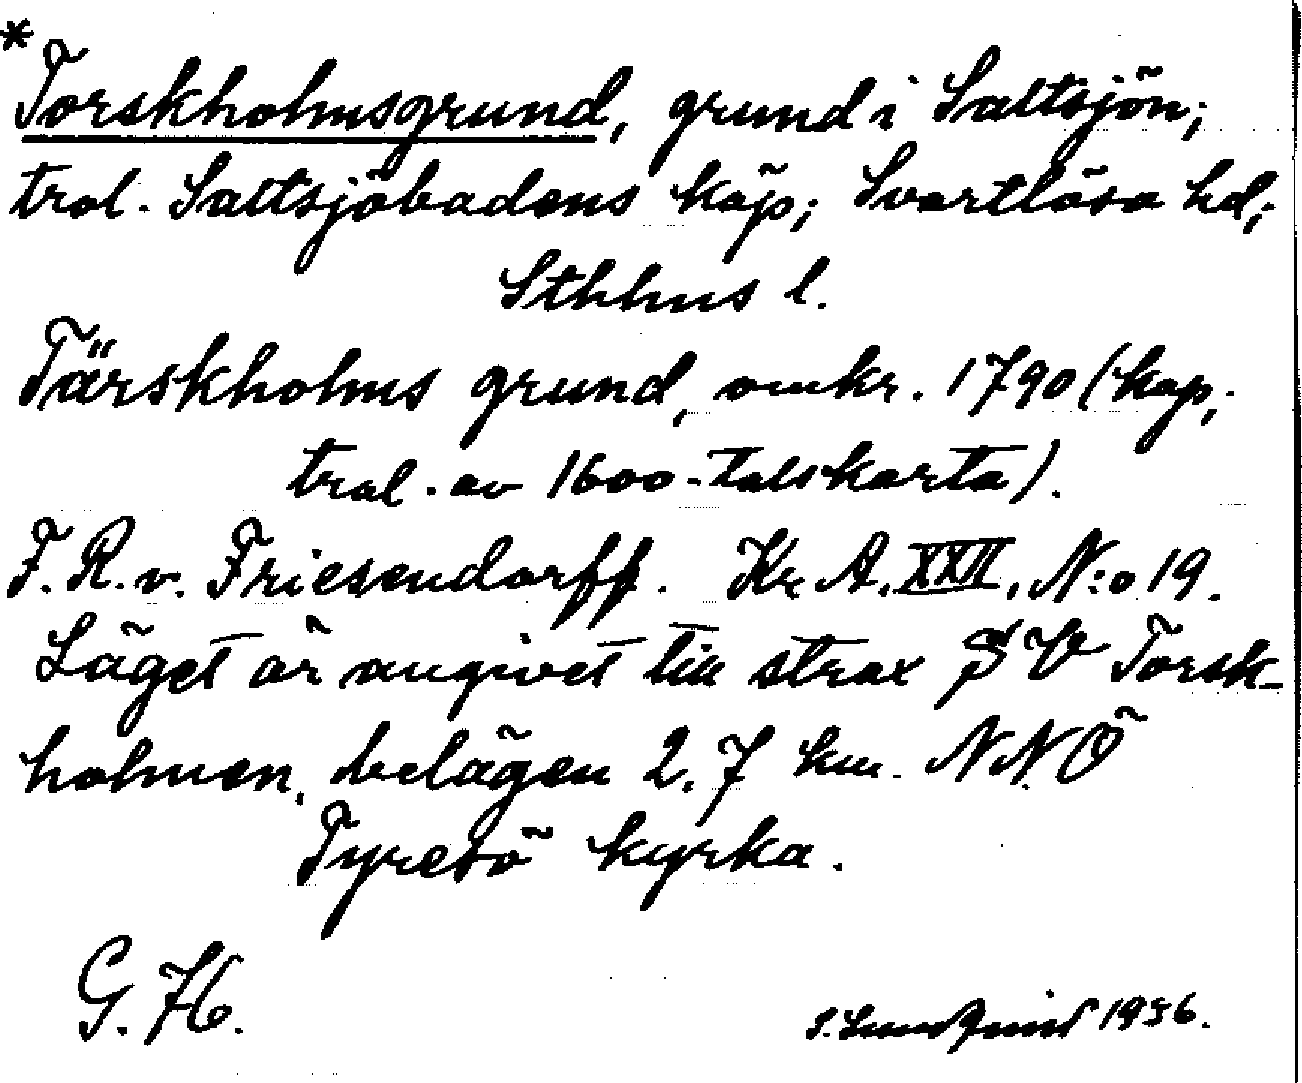 *Torskholmsgrund, grund i Saltsjön;
trol. Saltsjöbadens köp; Svartlösa hd;
Sthlms l.
Tärskholms grund, omkr. 1790 (kop,
trol. av 1600-talskarta).
F. R. v. Friesendorff. Kr. A. XXII, N:o 19.
Läget är angivet till strax SV Torsk-
holmen, belägen 2,7 km. NNÖ
Tyresö kyrka.
G. H.
S. Lundquist 1936.